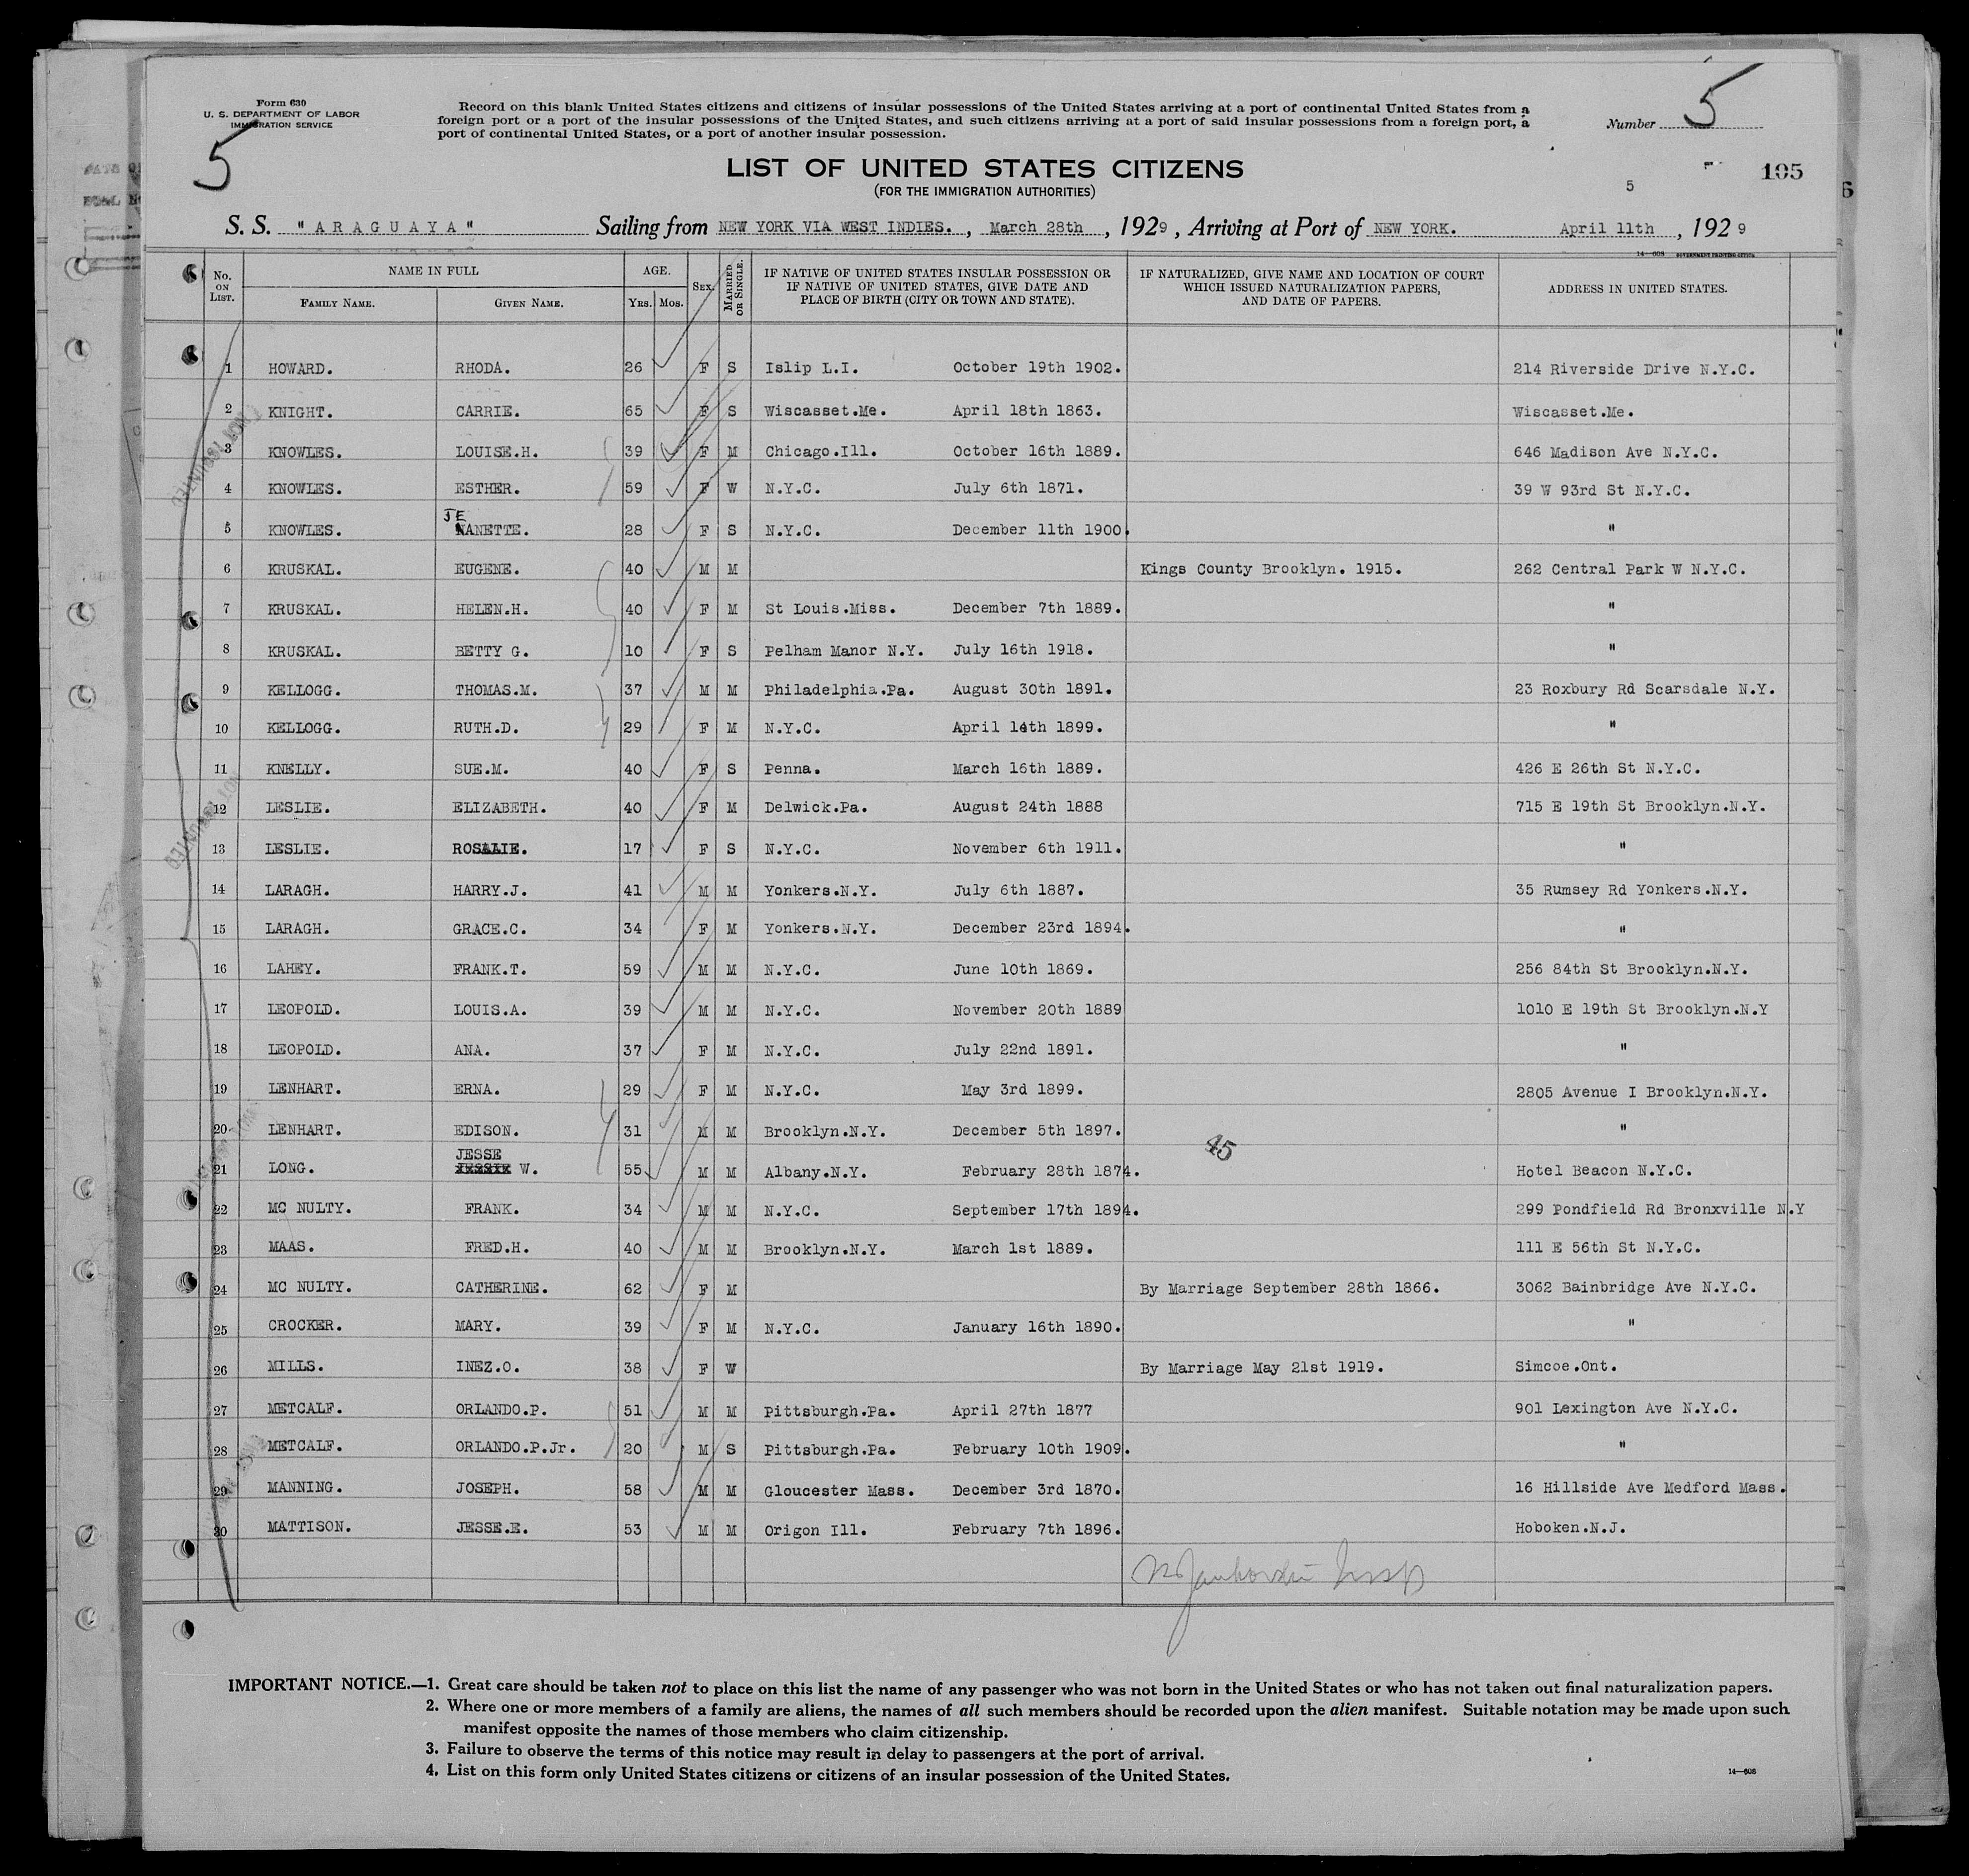 Form 630
U. S. DEPARTMENT OF LABOR
IMMIGRATION SERVICE
Record on this blank United States citizens and citizens of insular possessions of the United States arriving at a port of continental United States from a
foreign port or a port of the insular possessions of the United States, and such citizens arriving at a port of said insular possessions from a foreign port, a
port of continental United States, or a port of another insular possession.
Number 5
5
LIST OF UNITED STATES CITIZENS
(FOR THE IMMIGRATION AUTHORITIES)
5
105
S. S. "ARAGUAYA" Sailing from NEW YORK VIA WEST INDIES. , March 28th , 1929 , Arriving at Port of NEW YORK. April 11th , 1929
14—608 GOVERNMENT PRINTING OFFICE
No. ON LIST. NAME IN FULL FAMILY NAME. GIVEN NAME. AGE. YRS. MOS. SEX. MARRIED OR SINGLE. IF NATIVE OF UNITED STATES INSULAR POSSESSION OR IF NATIVE OF UNITED STATES, GIVE DATE AND PLACE OF BIRTH (CITY OR TOWN AND STATE). IF NATURALIZED, GIVE NAME AND LOCATION OF COURT WHICH ISSUED NATURALIZATION PAPERS, AND DATE OF PAPERS. ADDRESS IN UNITED STATES.
1 HOWARD. RHODA. 26 F S Islip L.I. October 19th 1902. 214 Riverside Drive N.Y.C.
2 KNIGHT. CARRIE. 65 F S Wiscasset.Me. April 18th 1863. Wiscasset.Me.
3 KNOWLES. LOUISE.H. 39 F M Chicago.Ill. October 16th 1889. 646 Madison Ave N.Y.C.
4 KNOWLES. ESTHER. 59 F W N.Y.C. July 6th 1871. 39 W 93rd St N.Y.C.
JE
5 KNOWLES. NANETTE. 28 F S N.Y.C. December 11th 1900. "
6 KRUSKAL. EUGENE. 40 M M Kings County Brooklyn. 1915. 262 Central Park W N.Y.C.
7 KRUSKAL. HELEN.H. 40 F M St Louis.Miss. December 7th 1889. "
8 KRUSKAL. BETTY G. 10 F S Pelham Manor N.Y. July 16th 1918. "
9 KELLOGG. THOMAS.M. 37 M M Philadelphia.Pa. August 30th 1891. 23 Roxbury Rd Scarsdale N.Y.
10 KELLOGG. RUTH.D. 29 F M N.Y.C. April 14th 1899. "
11 KNELLY. SUE.M. 40 F S Penna. March 16th 1889. 426 E 26th St N.Y.C.
12 LESLIE. ELIZABETH. 40 F M Delwick.Pa. August 24th 1888 715 E 19th St Brooklyn.N.Y.
13 LESLIE. ROSALIE. 17 F S N.Y.C. November 6th 1911. "
14 LARAGH. HARRY.J. 41 M M Yonkers.N.Y. July 6th 1887. 35 Rumsey Rd Yonkers.N.Y.
15 LARAGH. GRACE.C. 34 F M Yonkers.N.Y. December 23rd 1894. "
16 LAHEY. FRANK.T. 59 M M N.Y.C. June 10th 1869. 256 84th St Brooklyn.N.Y.
17 LEOPOLD. LOUIS.A. 39 M M N.Y.C. November 20th 1889 1010 E 19th St Brooklyn.N.Y
18 LEOPOLD. ANA. 37 F M N.Y.C. July 22nd 1891. "
19 LENHART. ERNA. 29 F M N.Y.C. May 3rd 1899. 2805 Avenue I Brooklyn.N.Y.
20 LENHART. EDISON. 31 M M Brooklyn.N.Y. December 5th 1897. "
45
JESSE
21 LONG. JESSIE W. 55 M M Albany.N.Y. February 28th 1874. Hotel Beacon N.Y.C.
22 MC NULTY. FRANK. 34 M M N.Y.C. September 17th 1894. 299 Pondfield Rd Bronxville N.Y
23 MAAS. FRED.H. 40 M M Brooklyn.N.Y. March 1st 1889. 111 E 56th St N.Y.C.
24 MC NULTY. CATHERINE. 62 F M By Marriage September 28th 1866. 3062 Bainbridge Ave N.Y.C.
25 CROCKER. MARY. 39 F M N.Y.C. January 16th 1890. "
26 MILLS. INEZ.O. 38 F W By Marriage May 21st 1919. Simcoe.Ont.
27 METCALF. ORLANDO.P. 51 M M Pittsburgh.Pa. April 27th 1877 901 Lexington Ave N.Y.C.
28 METCALF. ORLANDO.P.Jr. 20 M S Pittsburgh.Pa. February 10th 1909. "
29 MANNING. JOSEPH. 58 M M Gloucester Mass. December 3rd 1870. 16 Hillside Ave Medford Mass.
30 MATTISON. JESSE.E. 53 M M Origon Ill. February 7th 1896. Hoboken.N.J.
IMPORTANT NOTICE.—1. Great care should be taken not to place on this list the name of any passenger who was not born in the United States or who has not taken out final naturalization papers.
2. Where one or more members of a family are aliens, the names of all such members should be recorded upon the alien manifest. Suitable notation may be made upon such
manifest opposite the names of those members who claim citizenship.
3. Failure to observe the terms of this notice may result in delay to passengers at the port of arrival.
4. List on this form only United States citizens or citizens of an insular possession of the United States.
14—608